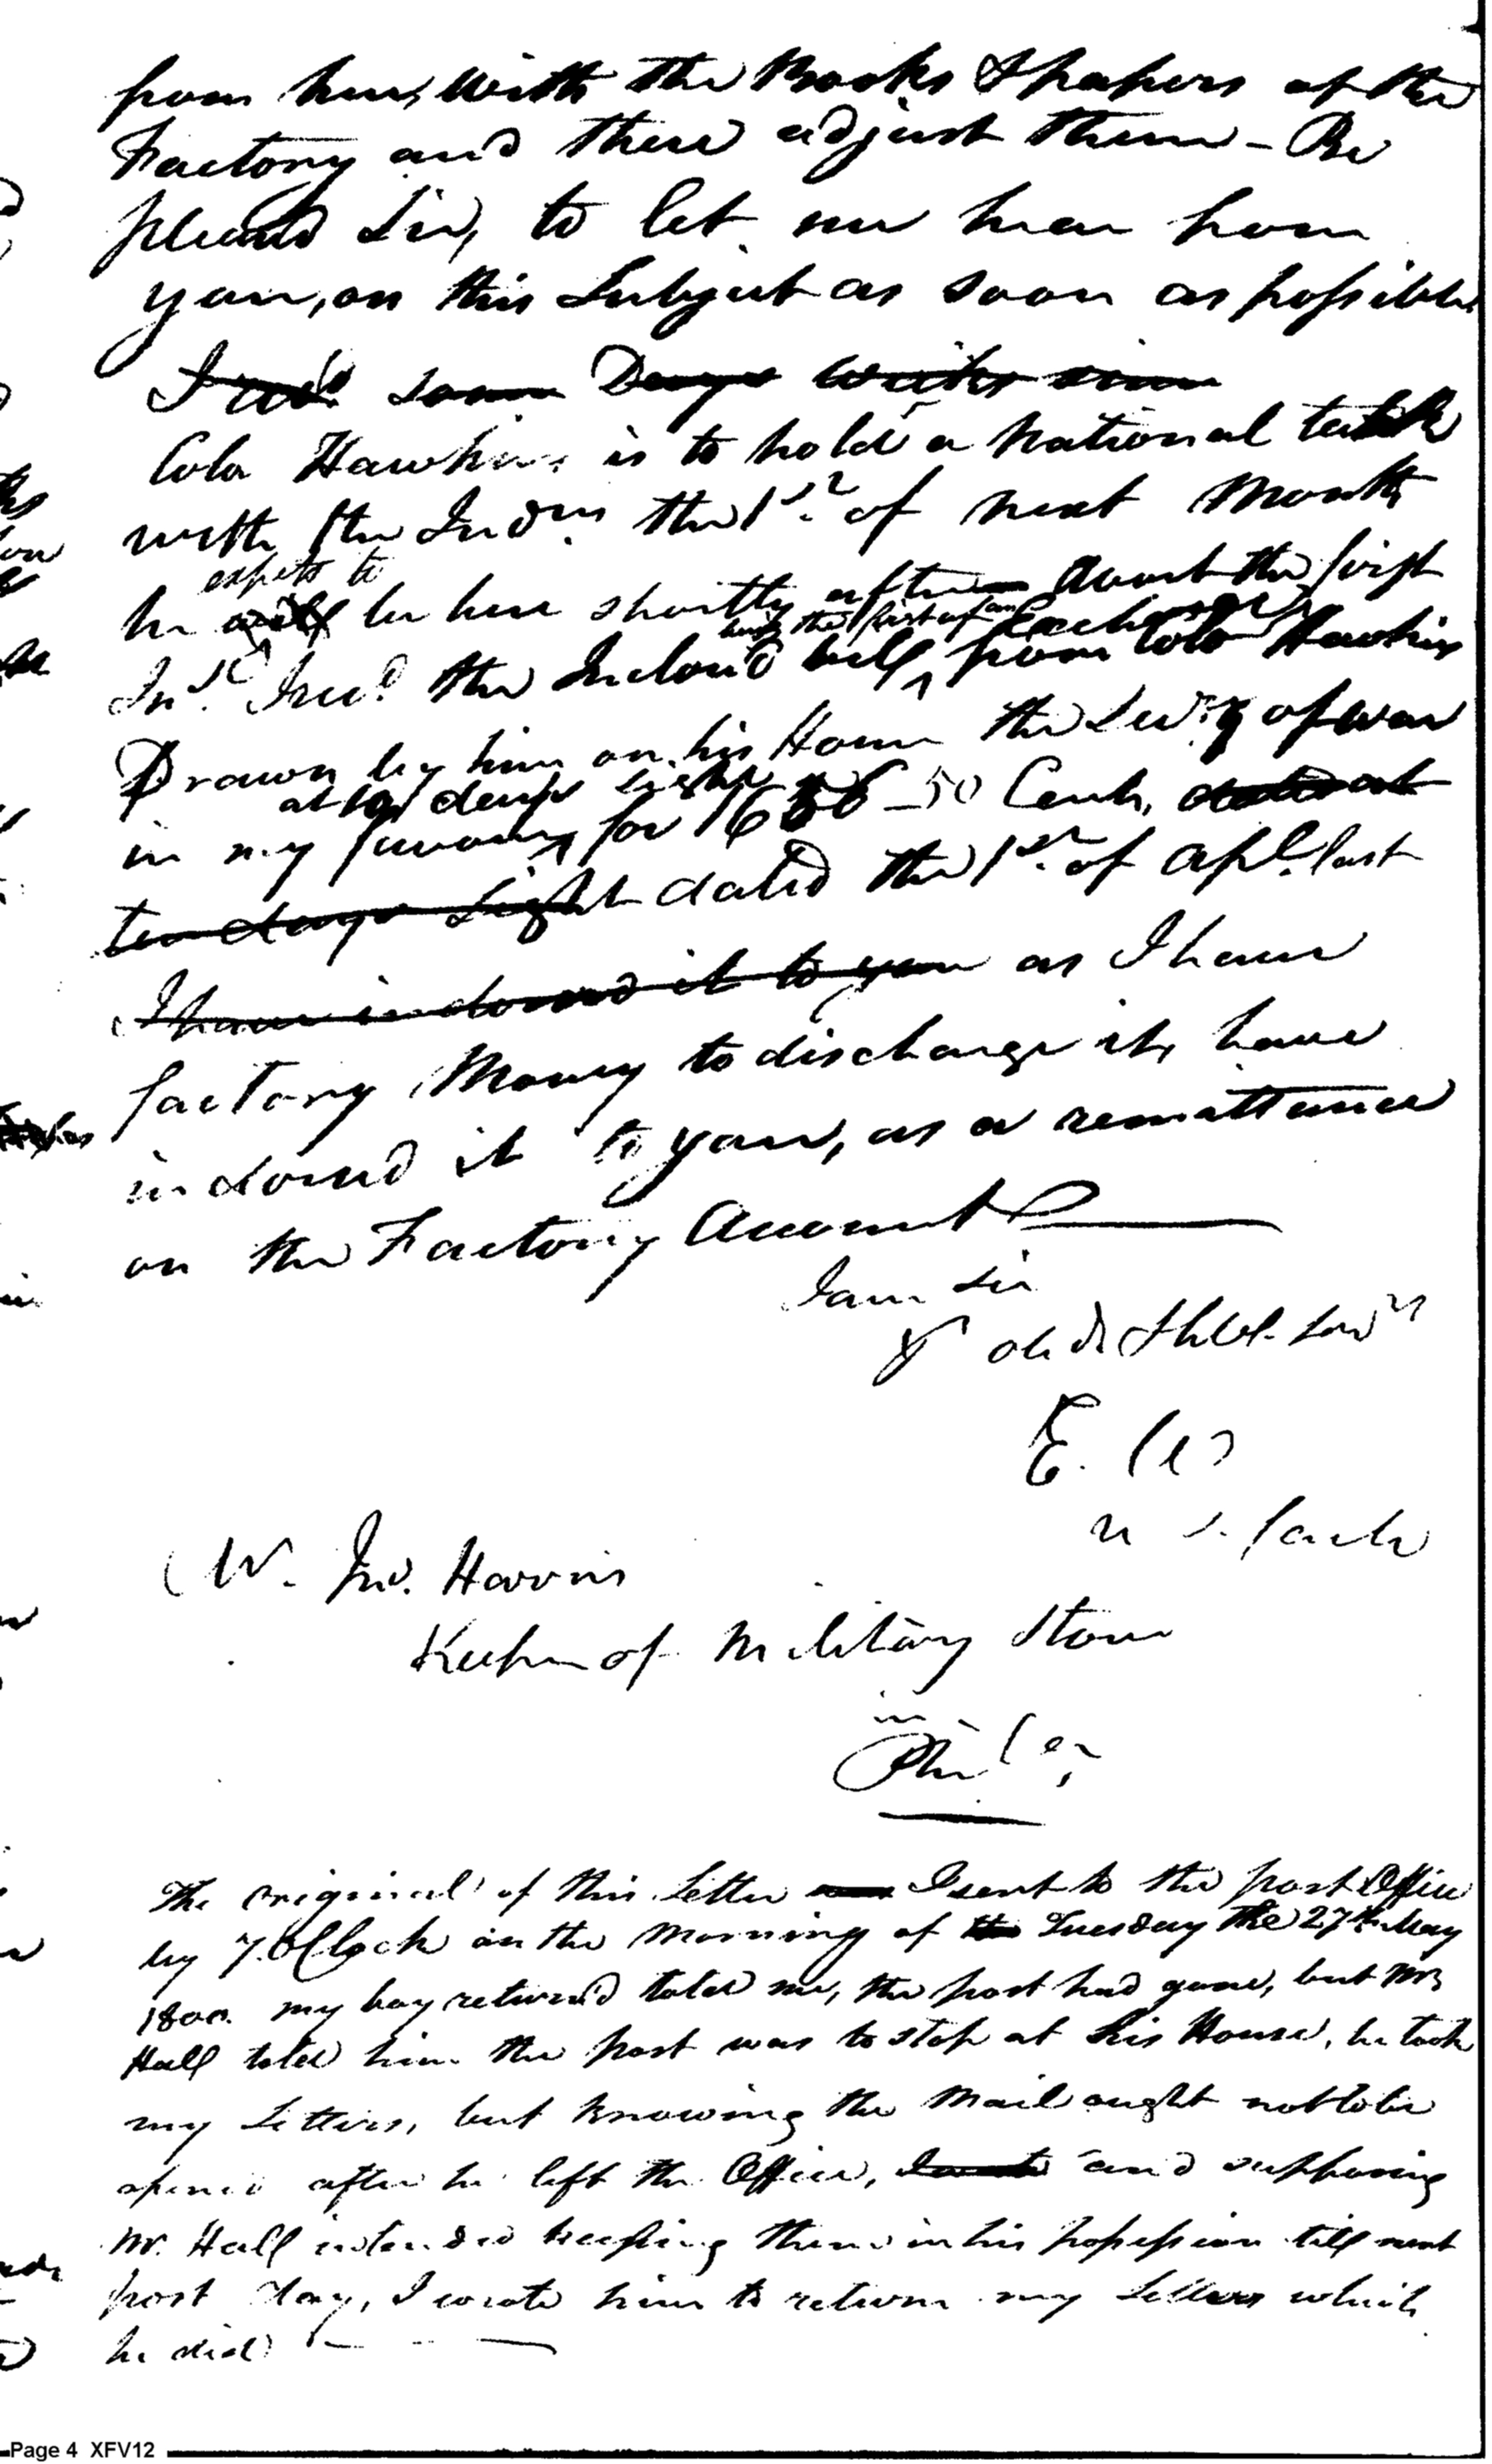 from here, with the Books & papers of the
Factory and there adjust them - Be
pleasd Sir, to let me hear from
you, on this Subject as soon as possible
I recd some Days weeks since
Colo Hawkins is to hold a national talk
with the Inds. the 1st. of next Month
expects to
he will be here shortly after about the first
being the first of an Exchange
Inst. Recd. the Inclosd bill from Colo Hawkins
Drawn by him on his Honr the Secry of war
at 10 days sight
in my favour for 1656-50 Cents, dated at
ten days Sight dated the 1st. of apl. last
I have indorsed it to you as I have
factory Money to discharge it, have
indorsd it to you, as a remittance
on the Factory Account
I am Sir
Yr obdt Hble. Servt
E. P
U S. Facto
W. Jno. Harris
Keeper of Military Stores
in
Phila
The original of this Letter I sent to the post Office
by 7. OClock on the Morning of the Tuesday the 27th May
1800. my boy returnd told me, the post had gone, but Mr
Hall told him the post was to stop at his House, he took
my Letters, but knowing the Mail ought not to be
opened after he left the Office, and supposing
Mr. Hall intended keeping them in his possession till next
post day, I wrote him to return my Letters which
he did
Page 4 XFV12